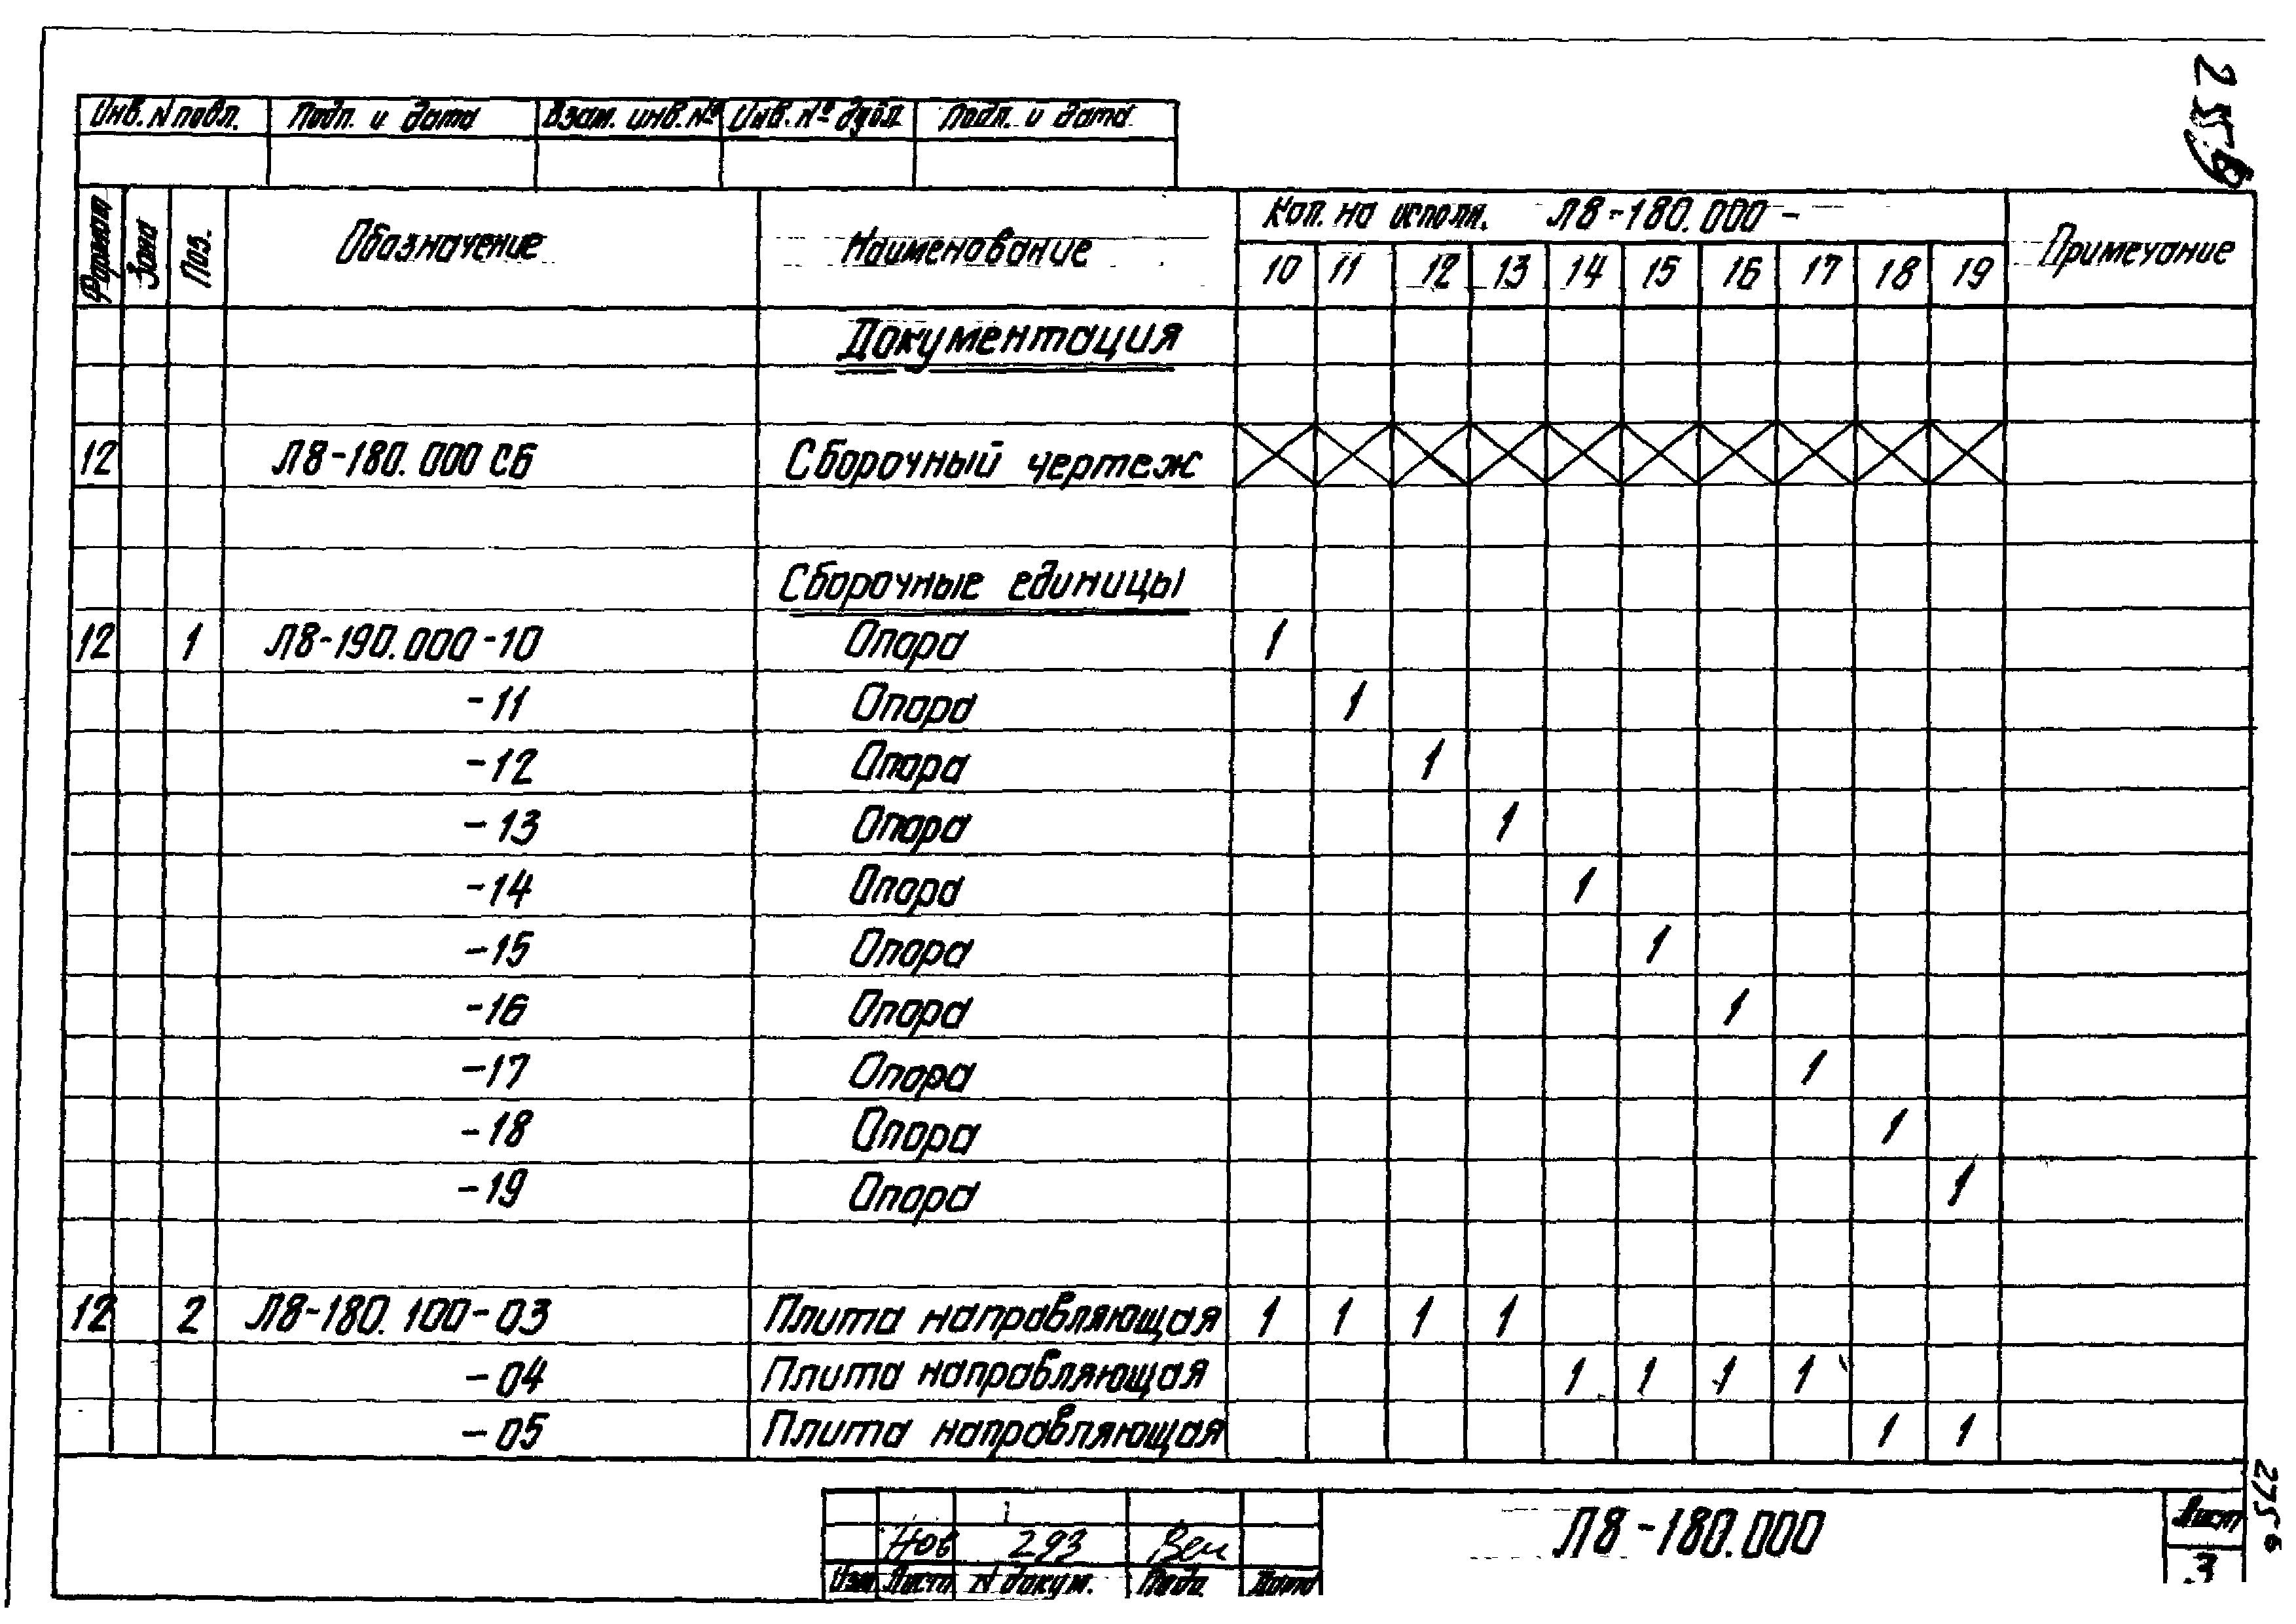 Инв. N подл. Подп. и дата Взам. инв. № Инв. № дубл. Подп. и дата
Формат Зона Поз. Обозначение Наименование Кол. на исполн. Л8-180.000 - Примечание
10 11 12 13 14 15 16 17 18 19
Документация
12 Л8-180.000 СБ Сборочный чертеж
Сборочные единицы
12 1 Л8-190.000-10 Опора 1
-11 Опора 1
-12 Опора 1
-13 Опора 1
-14 Опора 1
-15 Опора 1
-16 Опора 1
-17 Опора 1
-18 Опора 1
-19 Опора 1
12 2 Л8-180.100-03 Плита направляющая 1 1 1 1
-04 Плита направляющая 1 1 1 1
-05 Плита направляющая 1 1
Нов 293
Изм Лист N докум. Подп. Дата
Л8-180.000
Лист
3